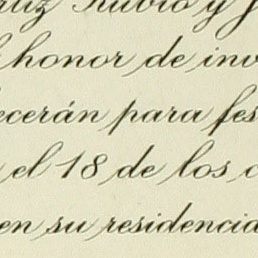 rtiz Rubio y J
honor de inv
ecerán para fes
el 18 de los c
en su residencia